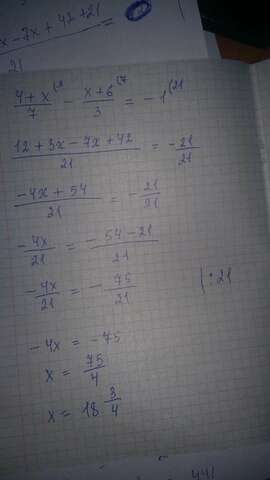 x - 7x + 42 + 21
21
(4 + x)/7 (3 - (x + 6)/3 (7 = -1 (21
(12 + 3x - 7x + 42)/21 = -21/21
(-4x + 54)/21 = -21/21
-4x/21 = (-54 - 21)/21
-4x/21 = -75/21 | : 21
-4x = -75
x = 75/4
x = 18 3/4